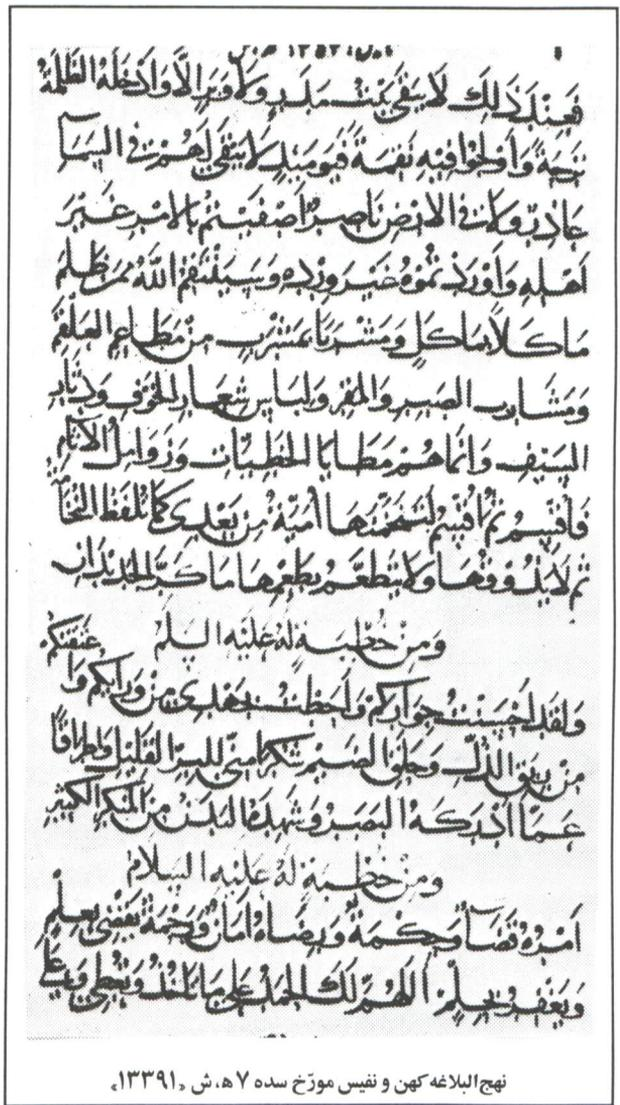 فعند ذلك لا يبقى بيت مدر ولا وبر الا وادخله الظلمة
ترحة واولجوا فيه نقمة فيومئذ لا يبقى لهم في السماء
عاذر ولا في الارض ناصر اصفيتم بالامر غير
اهله واوردتموه غير ورده وسينتقم الله ممن ظلم
ماكلا بماكل ومشربا بمشرب من مطاعم العلقم
ومشارب الصبر والمقر ولباس شعار الخوف ودثار
السيف وانما هم مطايا الخطيئات وزوامل الآثام
فاقسم ثم اقسم لتنخمنها امية من بعدي كما تلفظ النخامة
ثم لا تذوقها ولا تتطعم بطعمها ما كر الجديدان
ومن خطبة له عليه السلم
ولقد احسنت جواركم واحطت بجهدي من ورائكم واعتقتكم
من ربق الذل وحلق الضيم شكرا مني للبر القليل واطراقا
عما ادركه البصر وشهده البدن من المنكر الكثير
ومن خطبة له عليه السلام
امره قضاء وحكمة ورضاه امان ورحمة يقضي بعلم
ويغفر بحلم اللهم لك الحمد على ما تاخذ وتعطي وعلى
نهج‌البلاغه کهن و نفیس مورّخ سده ۷ ه‍، ش «۱۳۳۹۱»